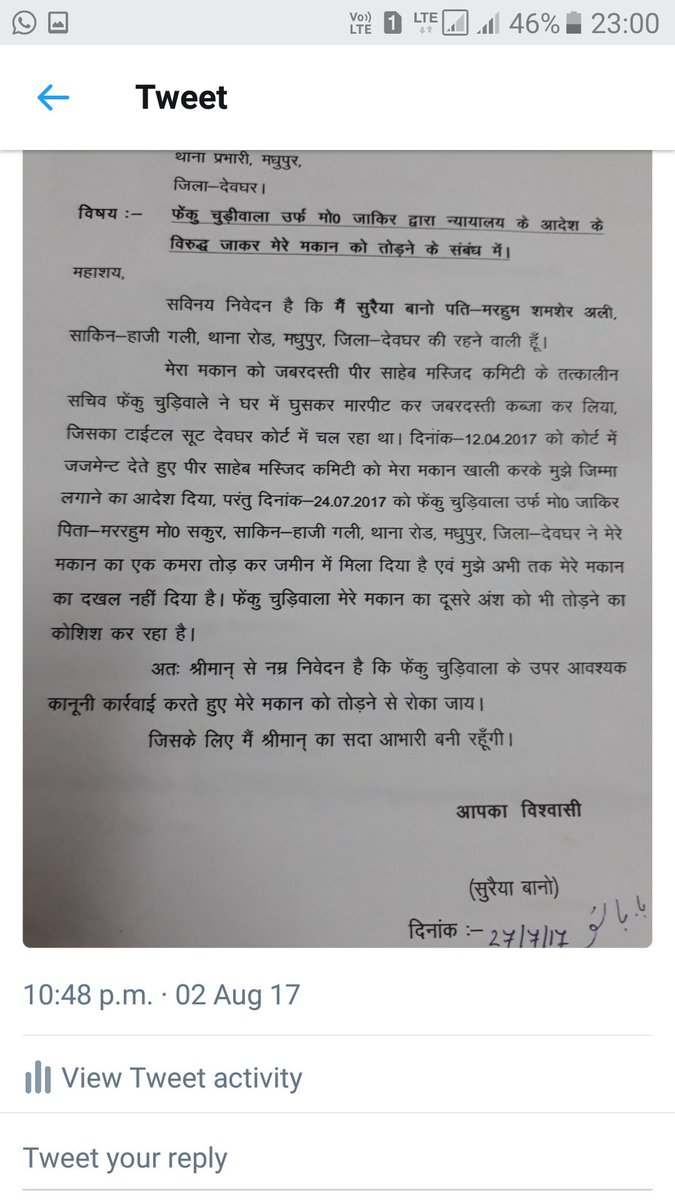 Vo)) LTE 1 LTE 46% 23:00
Tweet
थाना प्रभारी, मधुपुर,
जिला–देवघर।
विषय :– फेंकु चुड़ीवाला उर्फ मो0 जाकिर द्वारा न्यायालय के आदेश के
विरुद्ध जाकर मेरे मकान को तोड़ने के संबंध में।
महाशय,
सविनय निवेदन है कि मैं सुरैया बानो पति–मरहुम शमशेर अली,
साकिन–हाजी गली, थाना रोड, मधुपुर, जिला–देवघर की रहने वाली हूँ।
मेरा मकान को जबरदस्ती पीर साहेब मस्जिद कमिटी के तत्कालीन
सचिव फेंकु चुड़िवाले ने घर में घुसकर मारपीट कर जबरदस्ती कब्जा कर लिया,
जिसका टाईटल सूट देवघर कोर्ट में चल रहा था। दिनांक–12.04.2017 को कोर्ट में
जजमेन्ट देते हुए पीर साहेब मस्जिद कमिटी को मेरा मकान खाली करके मुझे जिम्मा
लगाने का आदेश दिया, परंतु दिनांक–24.07.2017 को फेंकु चुड़िवाला उर्फ मो0 जाकिर
पिता–मररहुम मो0 सकुर, साकिन–हाजी गली, थाना रोड, मधुपुर, जिला–देवघर ने मेरे
मकान का एक कमरा तोड़ कर जमीन में मिला दिया है एवं मुझे अभी तक मेरे मकान
का दखल नहीं दिया है। फेंकु चुड़िवाला मेरे मकान का दूसरे अंश को भी तोड़ने का
कोशिश कर रहा है।
अतः श्रीमान् से नम्र निवेदन है कि फेंकु चुड़िवाला के उपर आवश्यक
कानूनी कार्रवाई करते हुए मेरे मकान को तोड़ने से रोका जाय।
जिसके लिए मैं श्रीमान् का सदा आभारी बनी रहूँगी।
आपका विश्वासी
(सुरैया बानो)
दिनांक :– 27/7/17
10:48 p.m. · 02 Aug 17
View Tweet activity
Tweet your reply